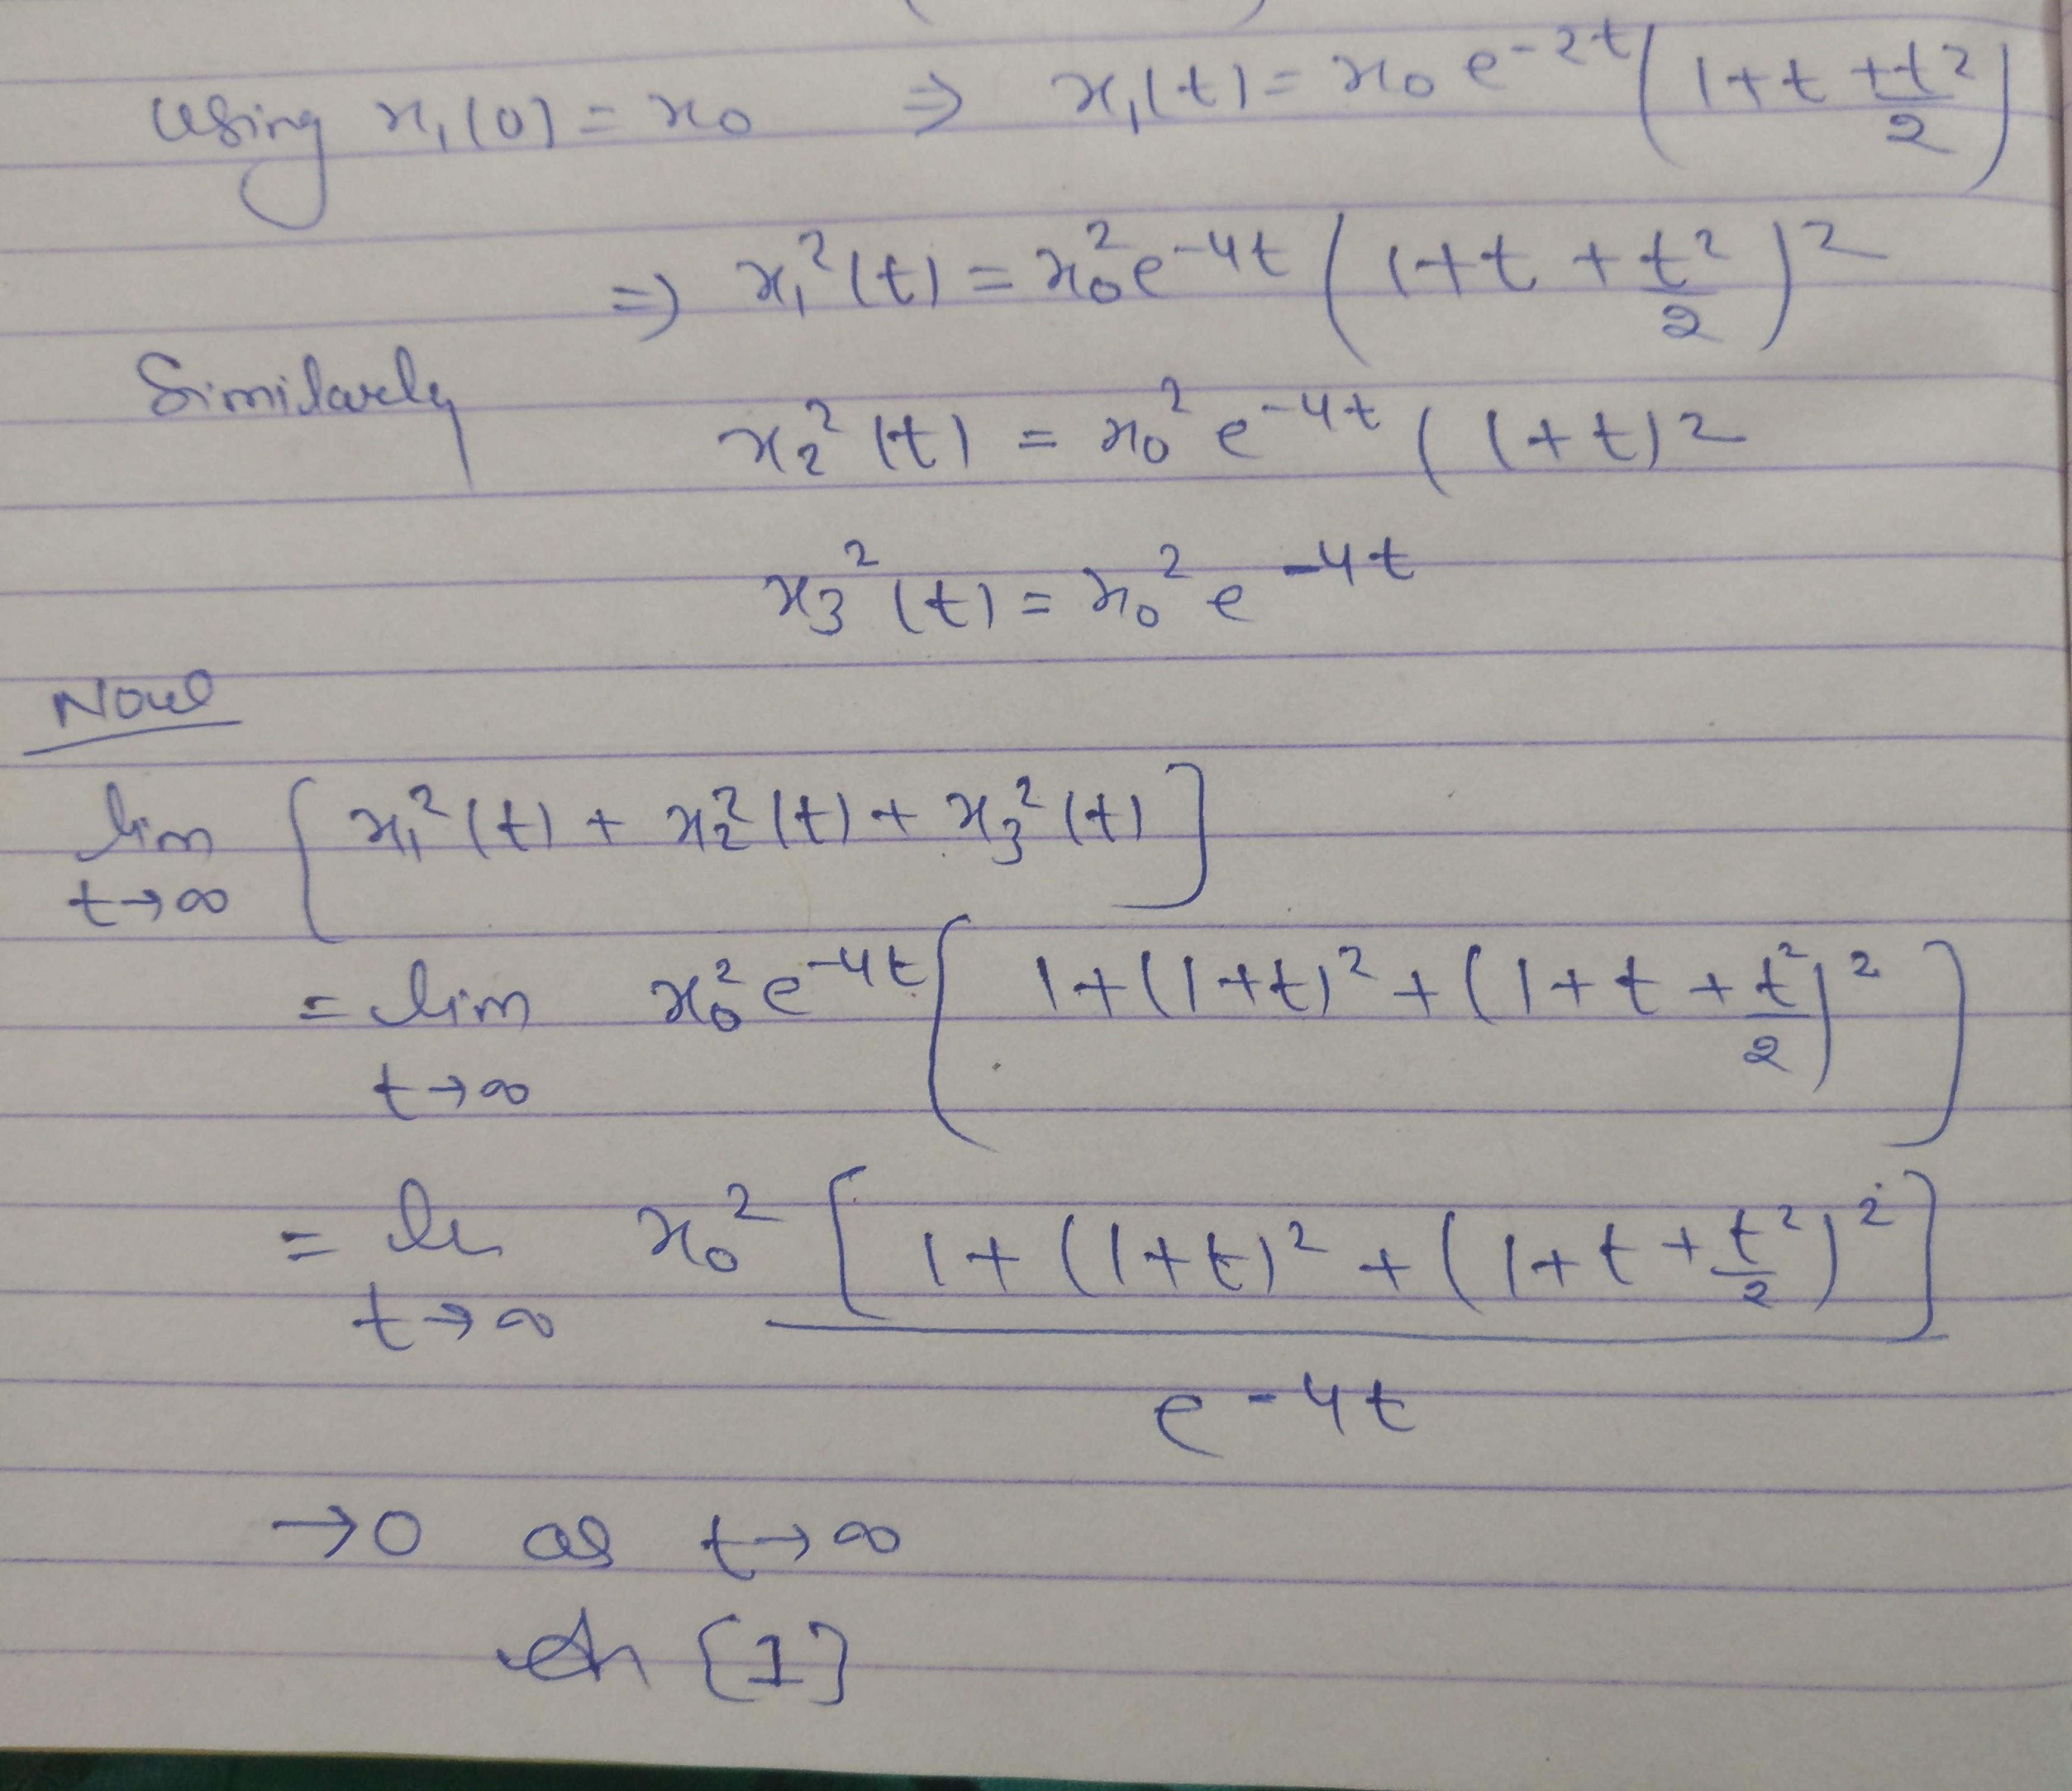 Using x₁(0) = x₀ ⇒ x₁(t) = x₀ e^{-2t} (1+t+t²/2)
⇒ x₁²(t) = x₀² e^{-4t} (1+t+t²/2)²
Similarly
x₂²(t) = x₀² e^{-4t} (1+t)²
x₃²(t) = x₀² e^{-4t}
Now
lim t→∞ [x₁²(t) + x₂²(t) + x₃²(t)]
= lim t→∞ x₀² e^{-4t} [1+(1+t)²+(1+t+t²/2)²]
= li t→∞ x₀² [1+(1+t)²+(1+t+t²/2)²] / e^{-4t}
→0 as t→∞
[1]